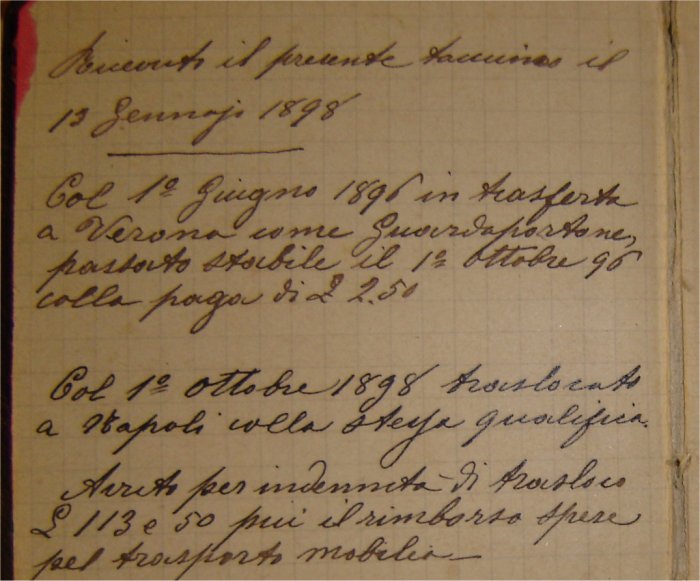 Ricevuto il presente taccuino il
13 Gennajo 1898
Col 1º Giugno 1896 in trasferta
a Verona come Guardaportone,
passato stabile il 1º Ottobre 96
colla paga di £ 2.50
Col 1º Ottobre 1898 traslocato
a Napoli colla stessa qualifica.
Avuto per indennità di trasloco
£ 113 e 50 più il rimborso spese
pel trasporto mobilia